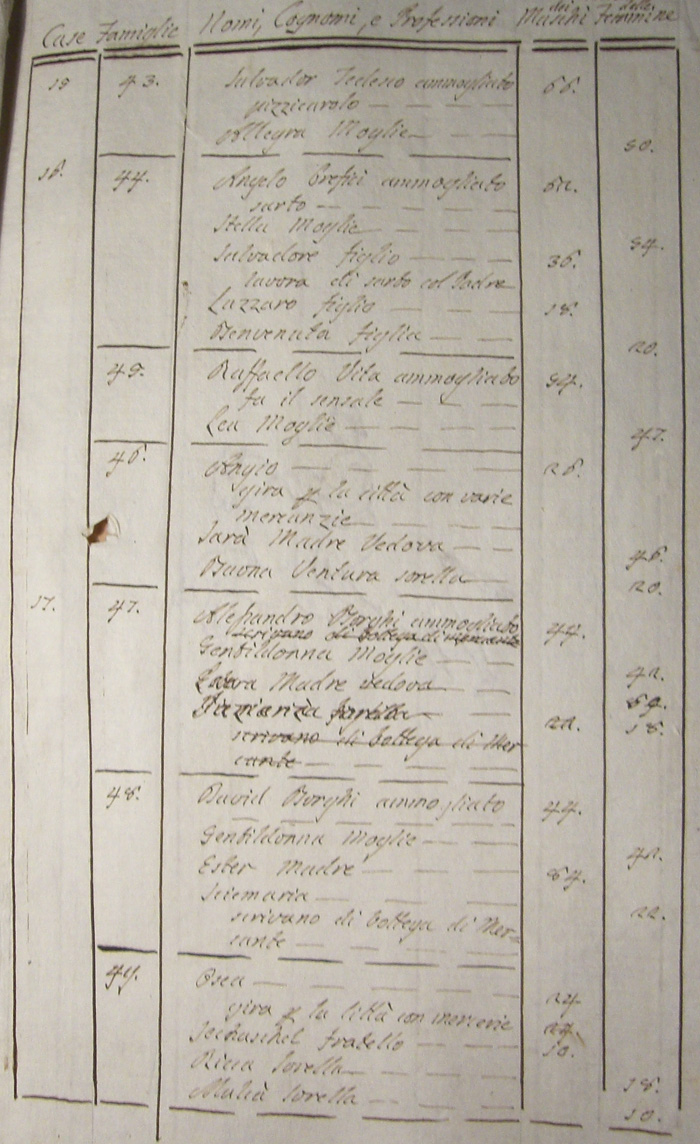 Case Famiglie Nomi, Cognomi, e Professioni dei Maschi delle Femmine
15 43. Salvador Tedesco ammogliato 66.
pizzicarolo
Allegra Moglie 50.
16. 44. Angelo Orefici ammogliato
sarto
Stella Moglie 54.
Salvadore figlio 36.
lavora di sarto col Padre
Lazzaro figlio 18.
Benvenuta figlia 20.
45. Raffaello Vita ammogliato 54.
fa il sensale
Lea Moglie 47.
46. Angio 26.
gira p la città con varie
mercanzie
Sarà Madre Vedova 46.
Buona Ventura sorella 20.
17. 47. Alessandro Borghi ammogliato 44.
scrivano di bottega di mercante
Gentildonna Moglie 42.
Madre vedova
18.
22.
scrivano di bottega di Mer
cante
48. David Borghi ammogliato 44.
Gentildonna Moglie 42.
Ester Madre 84.
Sciemaria 22.
scrivano di bottega di Mer=
cante
49. Osea 24
gira p la Città con mercerie
fratello 10.
Ricca Sorella 18.
Malià Sorella 10.